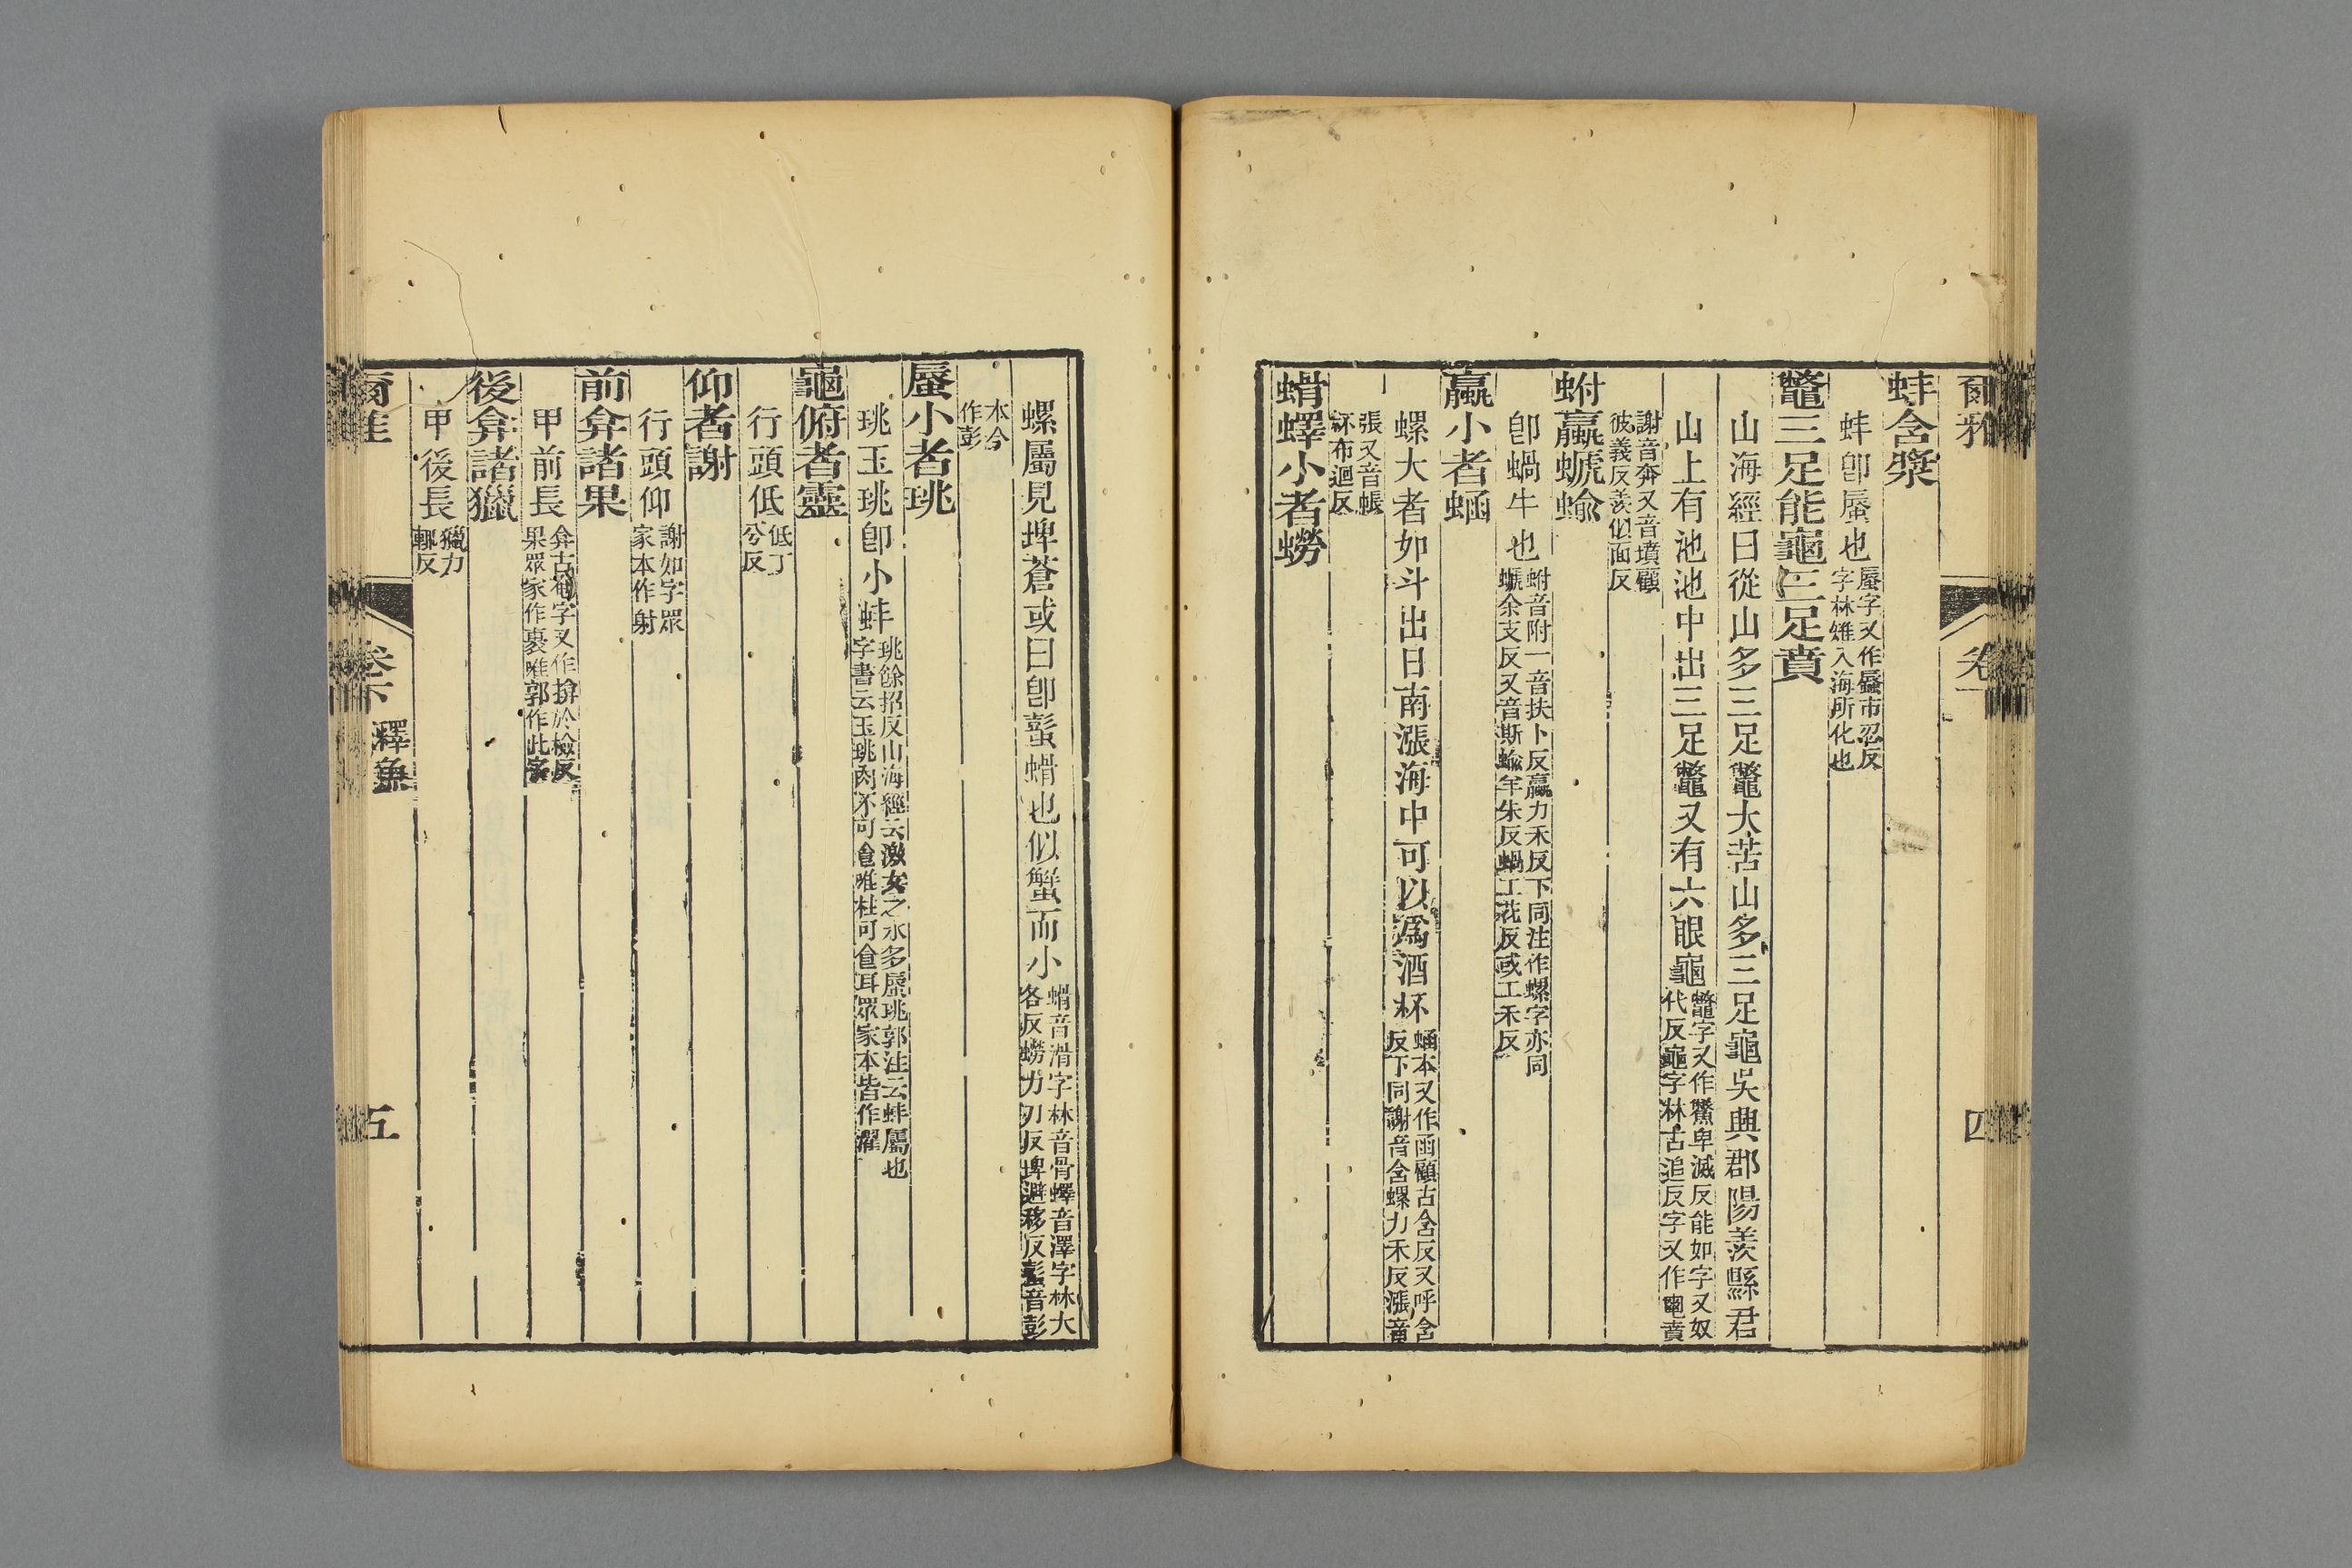 爾雅 卷下 四
蚌含漿
蚌卽蜃也
蜃字又作蜄市忍反
字林雉入海所化也
鼈三足能龜三足賁
山海經曰從山多三足鼈大苦山多三足龜吳興郡陽羨縣君
山上有池池中出三足鼈又有六眼龜
鼈字又作鱉卑滅反能如字又奴
代反龜字林古追反字又作𪚦賁
謝音奔又音墳顧
彼義反羨似面反
蚹蠃螔蝓
卽蝸牛也
蚹音附一音扶卜反蠃力禾反下同注作螺字亦同
螔余支反又音斯蝓羊朱反蝸工花反或工禾反
蠃小者蜬
螺大者如斗出日南漲海中可以爲酒杯
蜬本又作函顧古含反又呼含
反下同謝音含螺力禾反漲音
張又音帳
杯布迴反
蜎蠌小者蟧
螺屬見埤蒼或曰卽蟛蜎也似蟹而小
蜎音滑字林音骨蠌音澤字林大
各反蟧力刀反埤避移反蟛音彭
本今
作彭
蜃小者珧
珧玉珧卽小蚌
珧餘招反山海經云激女之水多蜃珧郭注云蚌屬也
字書云玉珧肉不可食唯柱可食耳眾家本皆作濯
龜俯者靈
行頭低
低丁
兮反
仰者謝
行頭仰
謝如字眾
家本作射
前弇諸果
甲前長
弇古奄字又作揜於檢反
果眾家作裹唯郭作此字
後弇諸獵
甲後長
獵力
輒反
爾雅 卷下 釋魚 五